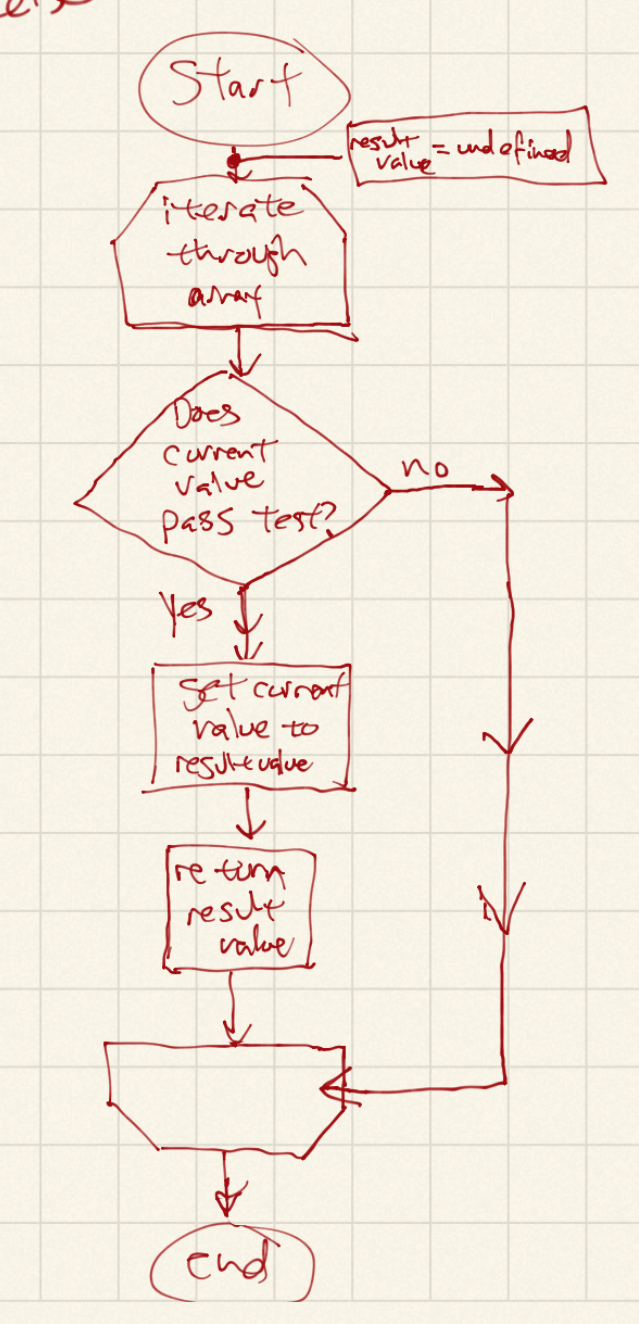 Start
result
value = undefined
iterate
through
array
Does
current
value
pass test?
no
yes
Set current
value to
result value
return
result
value
end